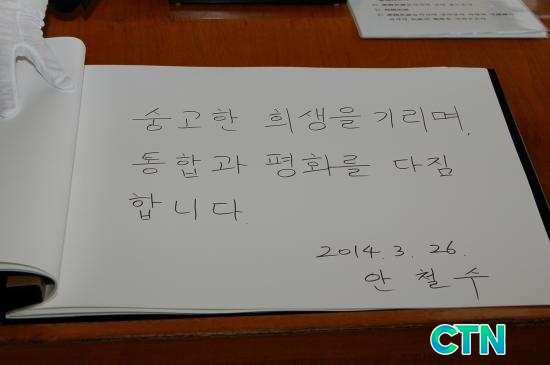 숭고한 희생을 기리며,
통합과 평화를 다짐
합니다.
2014. 3. 26.
안 철 수
CTN